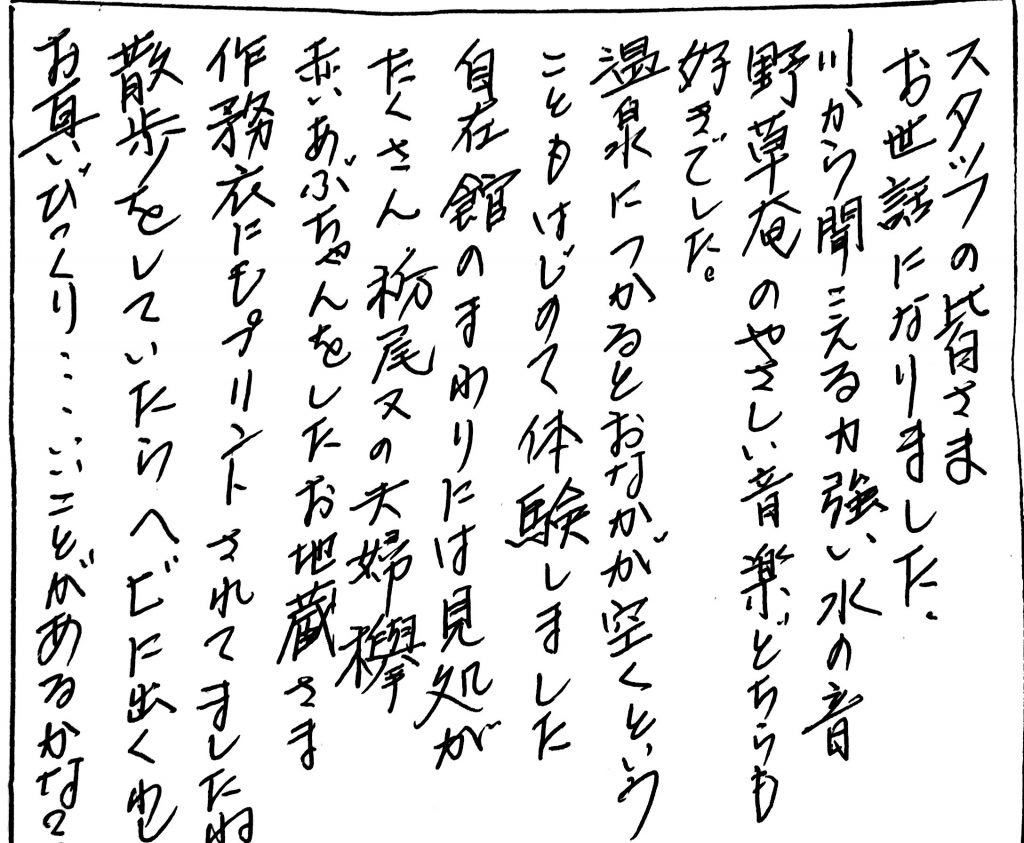 スタッフの皆さま
お世話になりました。
川から聞こえる力強い水の音
野草庵のやさしい音楽どちらも
好きでした。
温泉につかるとおなかが空くという
こともはじめて体験しました
自在館のまわりには見処が
たくさん 栃尾又の夫婦欅
赤いあぶちゃんをしたお地蔵さま
作務衣にもプリントされてましたね
散歩をしていたらヘビに出くわし
お互いびっくり・・・いいことがあるかな?